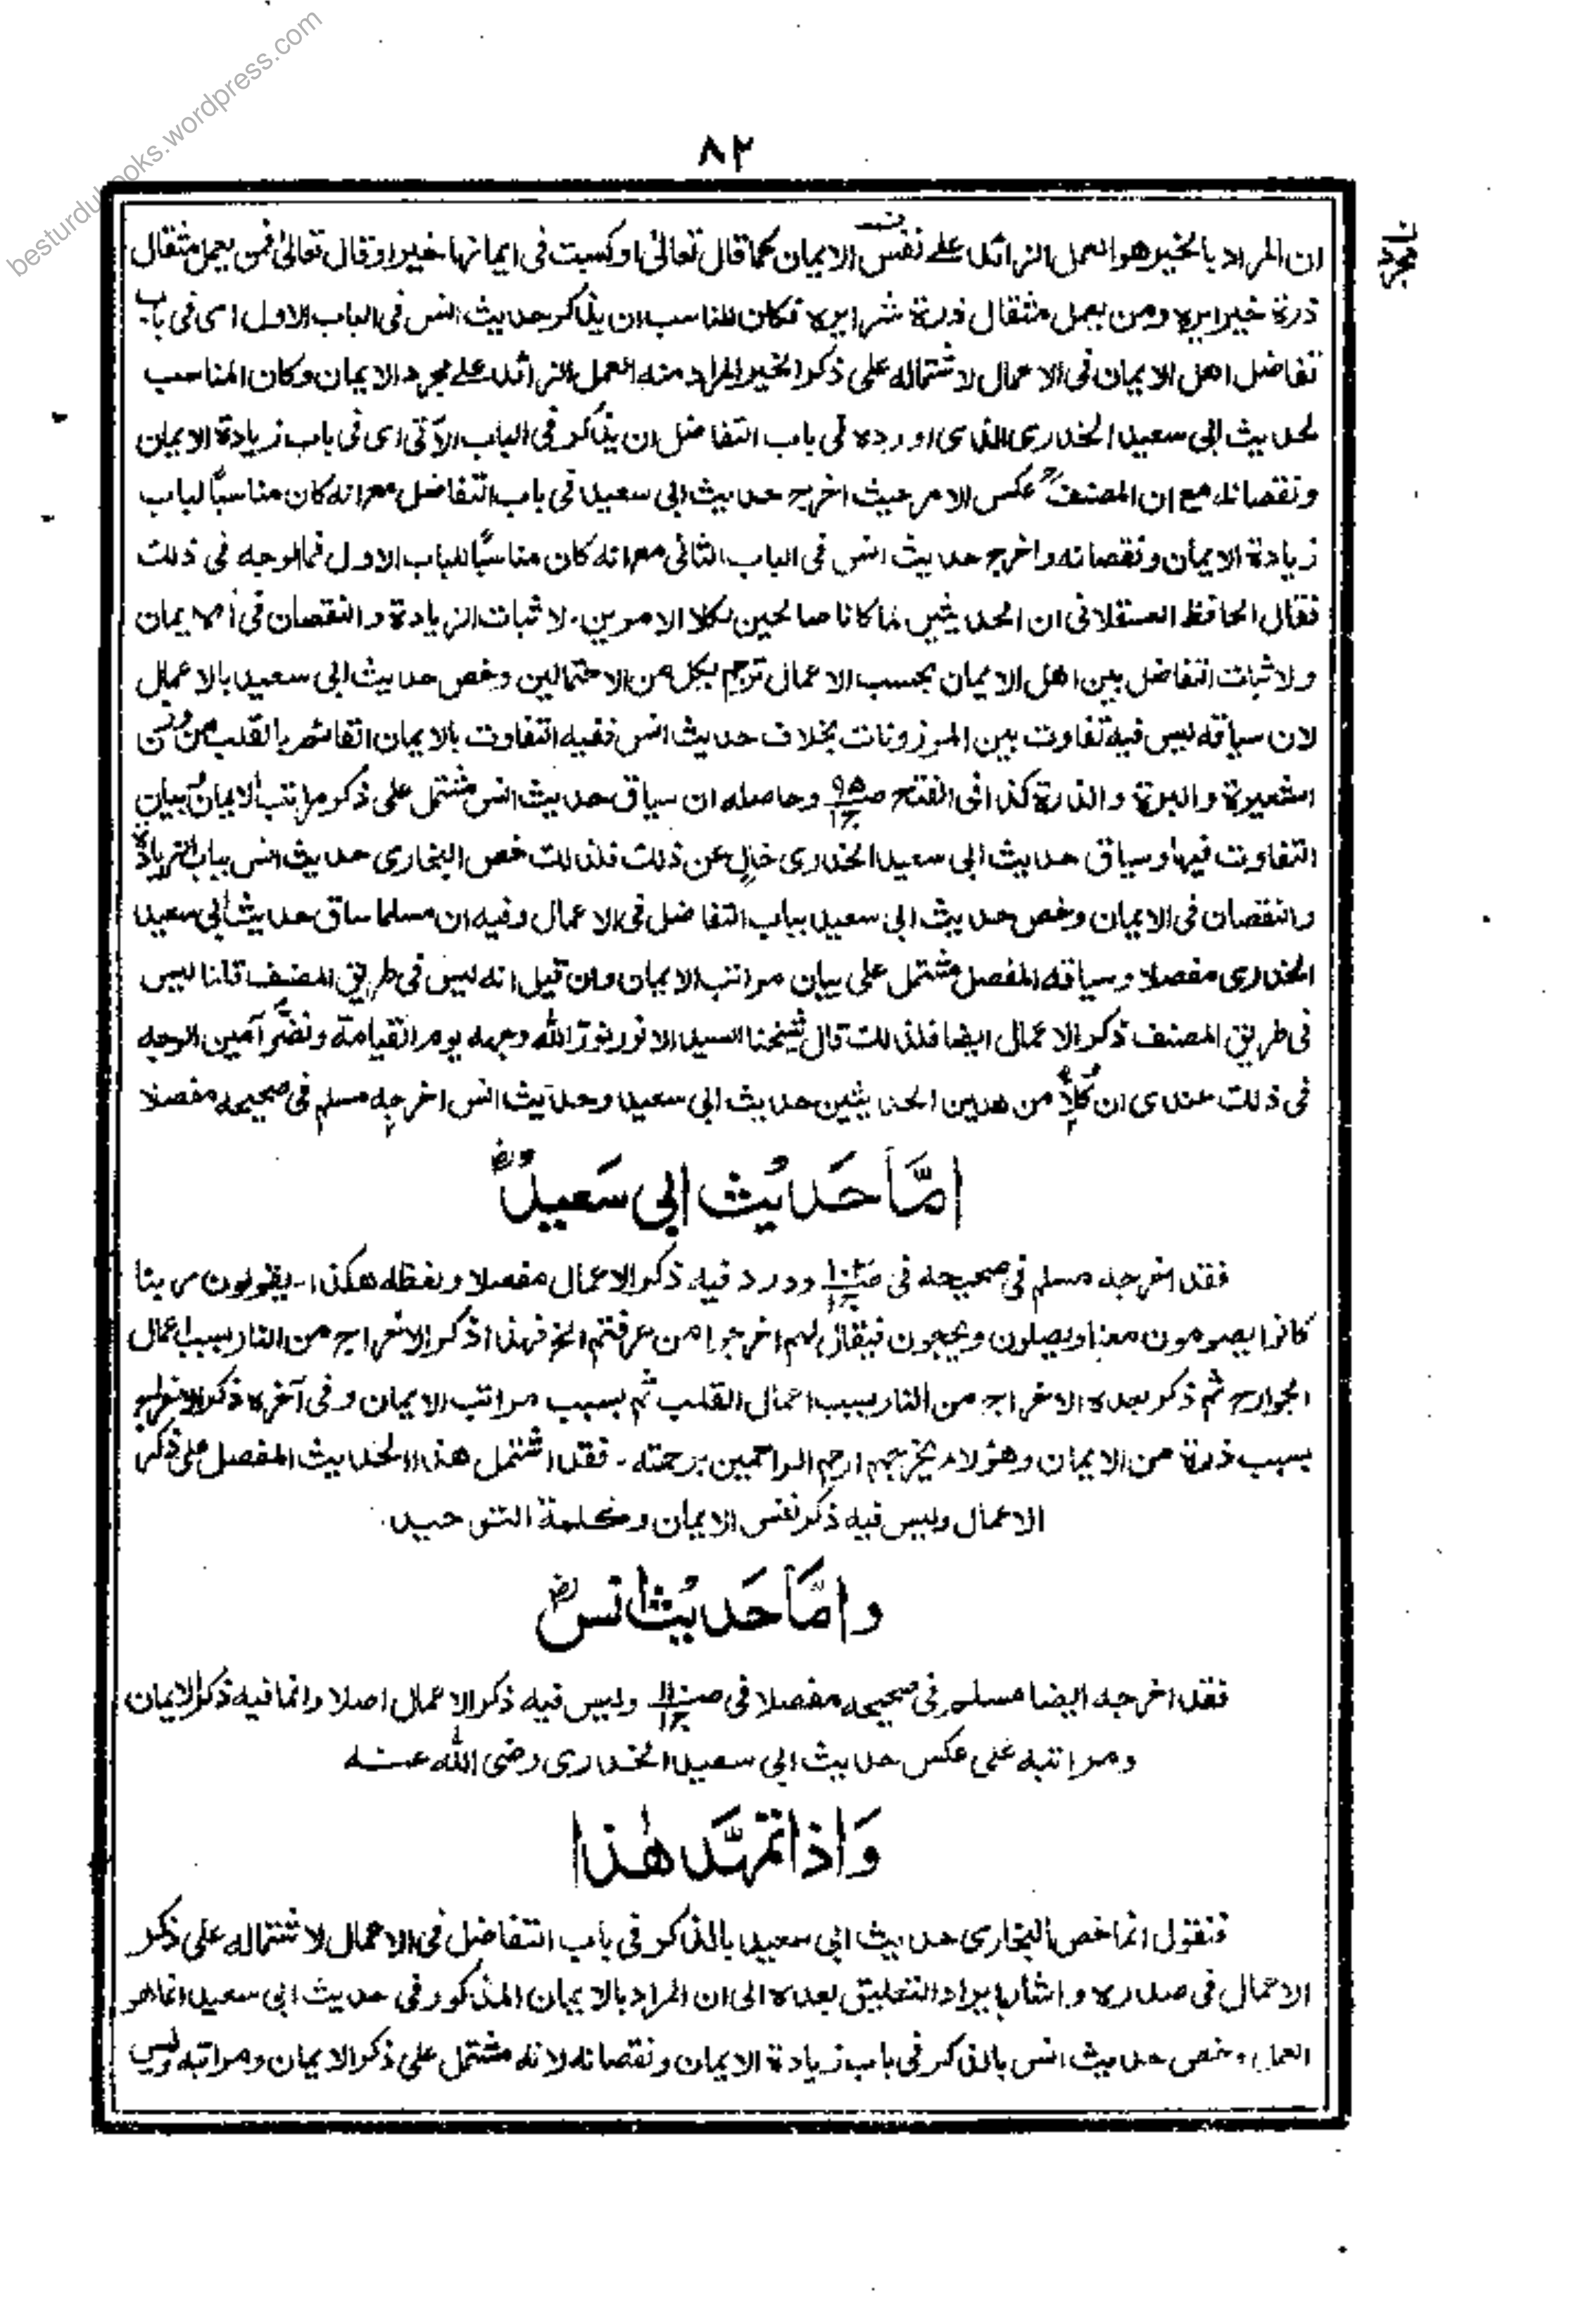 besturdubooks.wordpress.com
٨٢
ان المراد بالخير هو العمل الزائد على نفس الايمان كما قال تعالى او كسبت فى ايمانها خيرا وقال تعالى فمن يعمل مثقال
ذرة خيرا يره ومن يعمل مثقال ذرة شرا يره فكان المناسب ان يذكر حديث انس فى الباب الاول اى فى باب
تفاضل اهل الايمان فى الاعمال لاشتماله على ذكر الخير المراد منه العمل الزائد على مجرد الايمان وكان المناسب
لحديث ابى سعيد الخدرى الذى اورده فى باب التفاضل ان يذكر فى الباب الآتى اى فى باب زيادة الايمان
ونقصانه مع ان المصنفؒ عكس الامر حيث اخرج حديث ابى سعيد فى باب التفاضل مع انه كان مناسبًا لباب
زيادة الايمان ونقصانه واخرج حديث انس فى الباب الثانى مع انه كان مناسبًا للباب الاول فما الوجه فى ذلك
فقال الحافظ العسقلانى ان الحديثين لما كانا صالحين لكلا الامرين. لاثبات الزيادة والنقصان فى الايمان
ولاثبات التفاضل بين اهل الايمان بحسب الاعمال ترجم بكل من الاحتمالين وخص حديث ابى سعيد بالاعمال
لان سياقه ليس فيه تفاوت بين الموزونات بخلاف حديث انس ففيه التفاوت بالايمان القائم بالقلب من وزن
الشعيرة والبرة والذرة كذا فى الفتح صـ٩٥ ج١ وحاصله ان سياق حديث انس مشتمل على ذكر مراتب الايمان بيان
التفاوت فيها وسياق حديث ابى سعيد الخدرى خالٍ عن ذلك فلذلك خص البخارى حديث انس بباب الزيادة
والنقصان فى الايمان وخص حديث ابى سعيد بباب التفاضل فى الاعمال وفيه ان مسلما ساق حديث ابى سعيد
الخدرى مفصلا وسياقه المفصل مشتمل على بيان مراتب الايمان وان قيل انه ليس فى طريق المصنف قلنا ليس
فى طريق المصنف ذكر الاعمال ايضا فلذلك قال شيخنا السيد الانور نور الله وجهه يوم القيامة ونضر آمين الوجه
فى ذلك عندى ان كلًا من هذين الحديثين حديث ابى سعيد وحديث انس اخرجه مسلم فى صحيحه مفصلا
امَّا حَديُث ابى سَعيدؓ
فقد اخرجه مسلم فى صحيحه فى صـ ج١ وورد فيه ذكر الاعمال مفصلا ولفظه هكذا. يقولون ربنا
كانوا يصومون معنا ويصلون ويحجون فيقال لهم اخرجوا من عرفتم الخ فهذا ذكر الاخراج من النار بسبب اعمال
الجوارح ثم ذكر بعده الاخراج من النار بسبب اعمال القلب ثم بسبب مراتب الايمان وفى آخره ذكر الاخراج
بسبب ذرة من الايمان وهؤلاء يخرجهم ارحم الراحمين برحمته. فقد اشتمل هذا الحديث المفصل على ذكر
الاعمال وليس فيه ذكر نفس الايمان وكلمة التوحيد.
وامَّا حَديُث انسؓ
فقد اخرجه ايضا مسلم فى صحيحه مفصلا فى صـ ج١ وليس فيه ذكر الاعمال اصلا وانما فيه ذكر الايمان
ومراتبه على عكس حديث ابى سعيد الخدرى رضى الله عنه
وَاذا تمهَّد هٰذا
فنقول انما خص البخارى حديث ابى سعيد بالذكر فى باب التفاضل فى الاعمال لاشتماله على ذكر
الاعمال فى صدره واشار بايراد التعليق بعده الى ان المراد بالايمان المذكور فى حديث ابى سعيد انما هو
العمل وخص حديث انس بالذكر فى باب زيادة الايمان ونقصانه لانه مشتمل على ذكر الايمان ومراتبه وليس